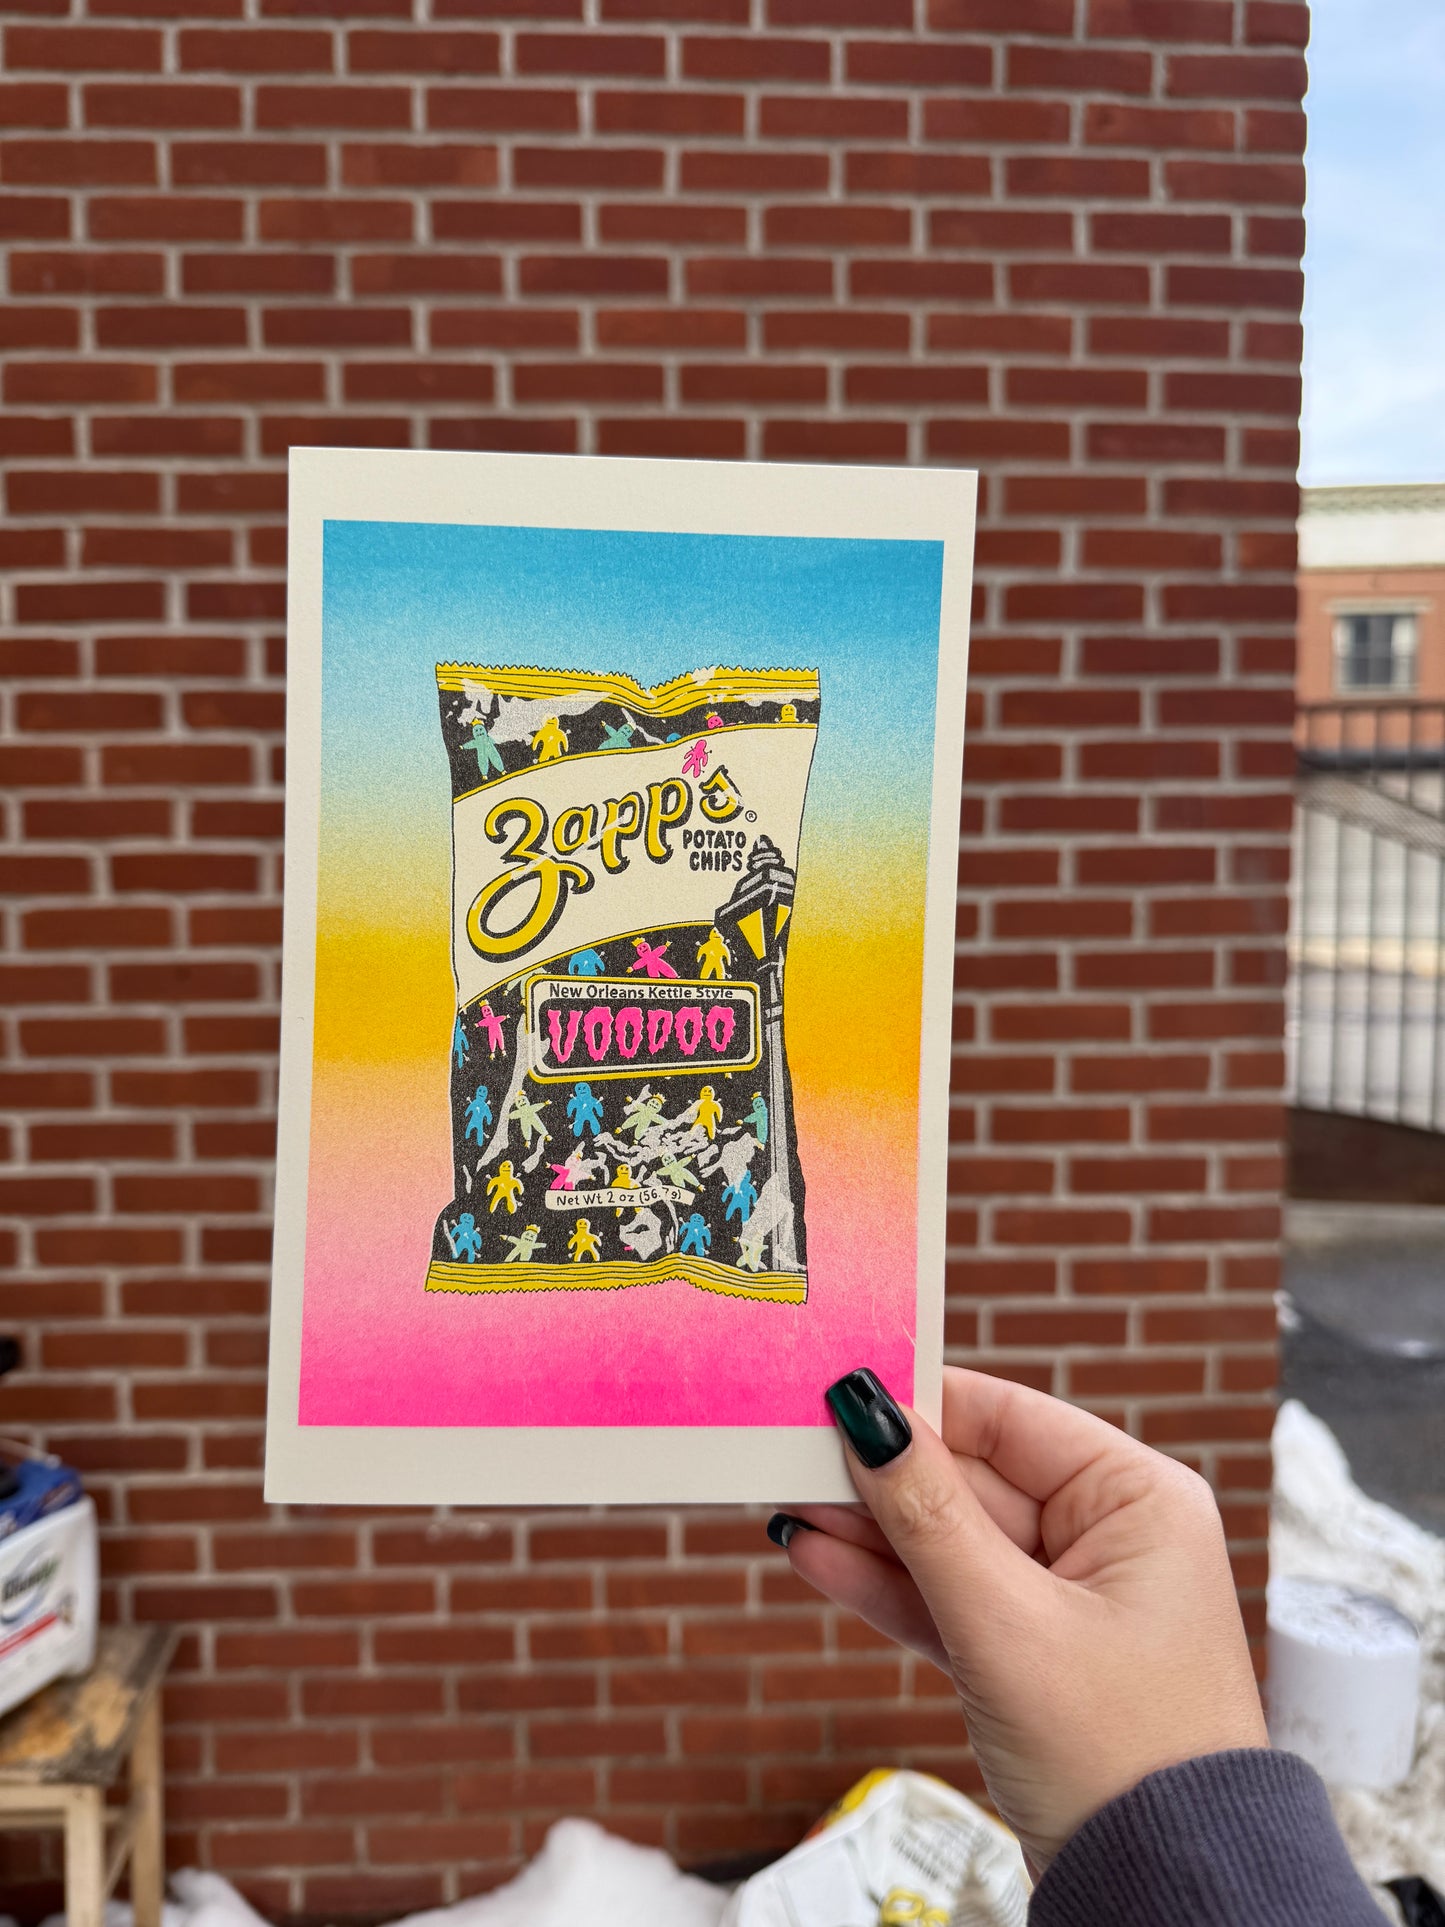 Zapp's®
POTATO
CHIPS
New Orleans Kettle Style
VOODOO
Net Wt 2 oz (56.7g)